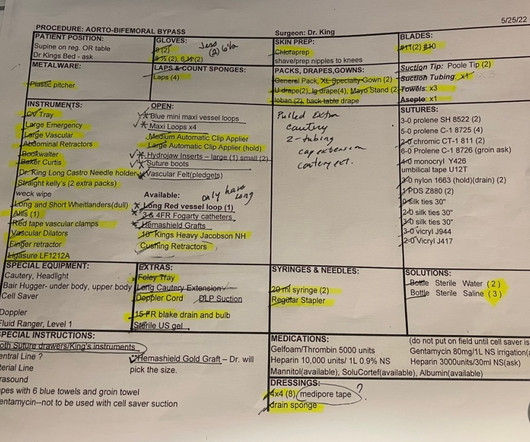 5/25/22
PROCEDURE: AORTO-BIFEMORAL BYPASS
Surgeon: Dr. King
PATIENT POSITION:
Supine on reg. OR table
Dr Kings Bed - ask
METALWARE:
Plastic pitcher
GLOVES:
(2)
LAPS & COUNT SPONGES:
Laps (4)
SKIN PREP:
Chloraprep
shave/prep nipples to knees
PACKS, DRAPES,GOWNS:
General Pack, XL Specialty Gown (2)
U drape(2), lg drape(4), Mayo Stand (2)
Ioban (2), back table drape
BLADES:
#11(2) #10
Suction Tip: Poole Tip (2)
Suction Tubing x1
Towels: x3
Asepto: x1
INSTRUMENTS:
CV Tray
Large Emergency
Large Vascular
Abdominal Retractors
Bookwalter
Baker Curts
Dr. King Long Castro Needle holder
Straight kelly's (2 extra packs)
weck wipe
Long and Short Wheitlanders(dull)
Allis (1)
Red tape vascular clamps
Vascular Dilators
Finger retractor
Ligasure LF1212A
OPEN:
Blue mini maxi vessel loops
Maxi Loops x4
Medium Automatic Clip Applier
Large Automatic Clip Applier (hold)
Hydrojaw Inserts – large (1) small (2)
Suture boots
Vascular Felt(pledgets)
Available:
only have long
Long Red vessel loop (1)
3 & 4FR Fogarty catheters
Hemashield Grafts
10" Kings Heavy Jacobson NH
Cushing Retractors
Pulled
cautery
2-tubing
cap extension
SUTURES:
3-0 prolene SH 8522 (2)
5-0 prolene C-1 8725 (4)
2-0 chromic CT-1 811 (2)
6-0 Prolene C-1 8726 (groin ask)
4-0 monocryl Y426
umbilical tape U12T
2-0 nylon 1663 (hold)(drain) (2)
1 PDS Z880 (2)
0 silk ties 30"
2-0 silk ties 30"
3-0 silk ties 30"
3-0 vicryl J944
2-0 Vicryl J417
SPECIAL EQUIPMENT:
Cautery, Headlight
Bair Hugger- under body, upper body
Cell Saver
Doppler
Fluid Ranger, Level 1
EXTRAS:
Foley Tray
Long Cautery Extension
Doppler Cord DLP Suction
15 FR blake drain and bulb
Sterile US gel
SYRINGES & NEEDLES:
20 ml syringe (2)
Regular Stapler
SOLUTIONS:
Bottle Sterile Water (2)
Bottle Sterile Saline (3)
SPECIAL INSTRUCTIONS:
Suture drawers/King's instruments
Central Line ?
Arterial Line
Hemashield Gold Graft – Dr. will
pick the size.
with 6 blue towels and groin towel
Gentamycin--not to be used with cell saver suction
MEDICATIONS:
(do not put on field until cell saver is
Gelfoam/Thrombin 5000 units
Gentamycin 80mg/1L NS irrigation
Heparin 10,000 units/ 1L 0.9% NS
Heparin 3000units/30ml NS(ask)
Mannitol(available), SoluCortef(available), Albumin(available)
DRESSINGS:
4x4 (8) medipore tape ?
drain sponge